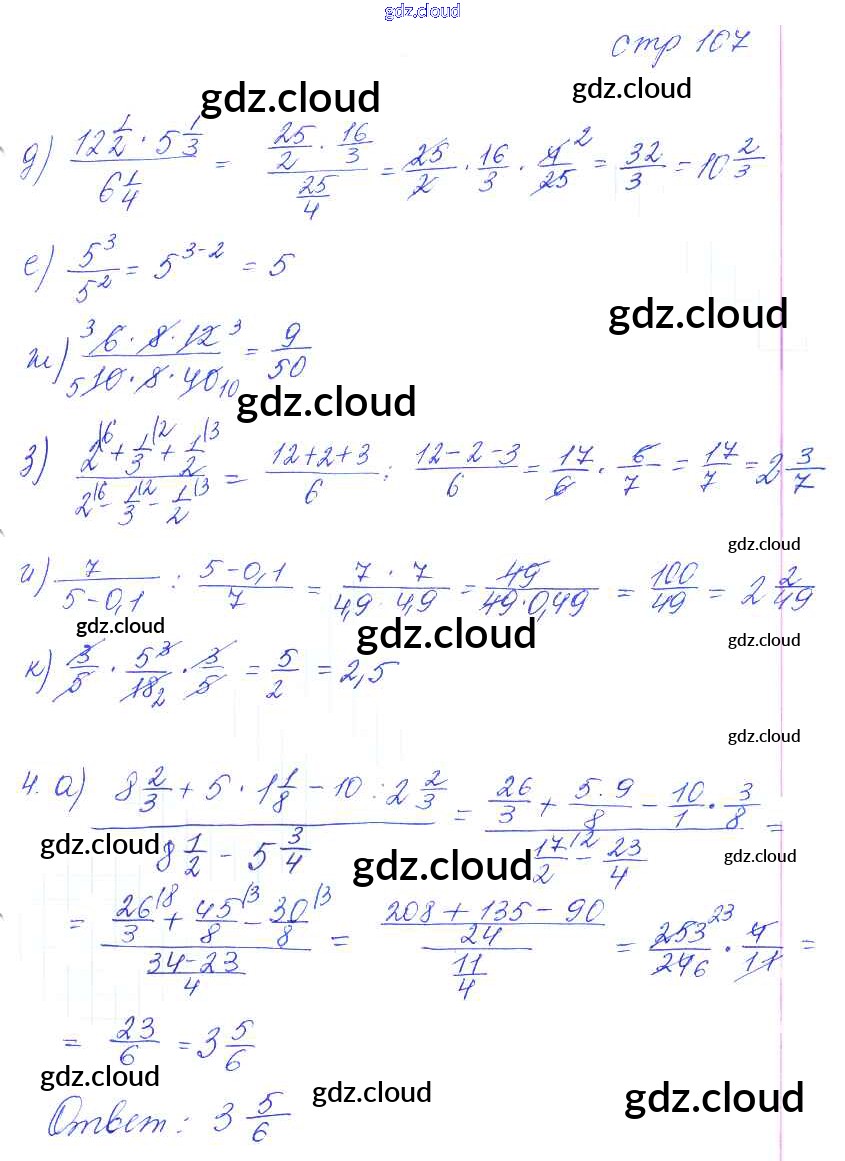 gdz.cloud
стр 107
gdz.cloud gdz.cloud
д) (12 1/2 · 5 1/3)/(6 1/4) = (25/2 · 16/3)/(25/4) = 25/2 · 16/3 · 4²/25 = 32/3 = 10 2/3
е) 5³/5² = 5³⁻² = 5
gdz.cloud
ж) (³6 · 8 · 12 ³)/(₅10 · 8 · 40₁₀) = 9/50
gdz.cloud
з) (2|6 + 1/3|2 + 1/2|3)/(2|6 - 1/3|2 - 1/2|3) = (12+2+3)/6 : (12-2-3)/6 = 17/6 · 6/7 = 17/7 = 2 3/7
gdz.cloud
и) 7/(5-0,1) : (5-0,1)/7 = (7 · 7)/(4,9 · 4,9) = 49/(49·0,49) = 100/49 = 2 2/49
gdz.cloud gdz.cloud gdz.cloud
к) 3/5 · 5³/18₂ · 3/5 = 5/2 = 2,5
gdz.cloud
4. а) (8 2/3 + 5 · 1 1/8 - 10 : 2 2/3)/(8 1/2 - 5 3/4) = (26/3 + 5·9/8 - 10/1 · 3/8)/(17/2|2 - 23/4) =
gdz.cloud gdz.cloud gdz.cloud
= (26/3|8 + 45/8|3 - 30/8|3)/((34-23)/4) = ((208+135-90)/24)/(11/4) = 253²³/24₆ · 4/11 =
= 23/6 = 3 5/6
gdz.cloud gdz.cloud gdz.cloud
Ответ: 3 5/6